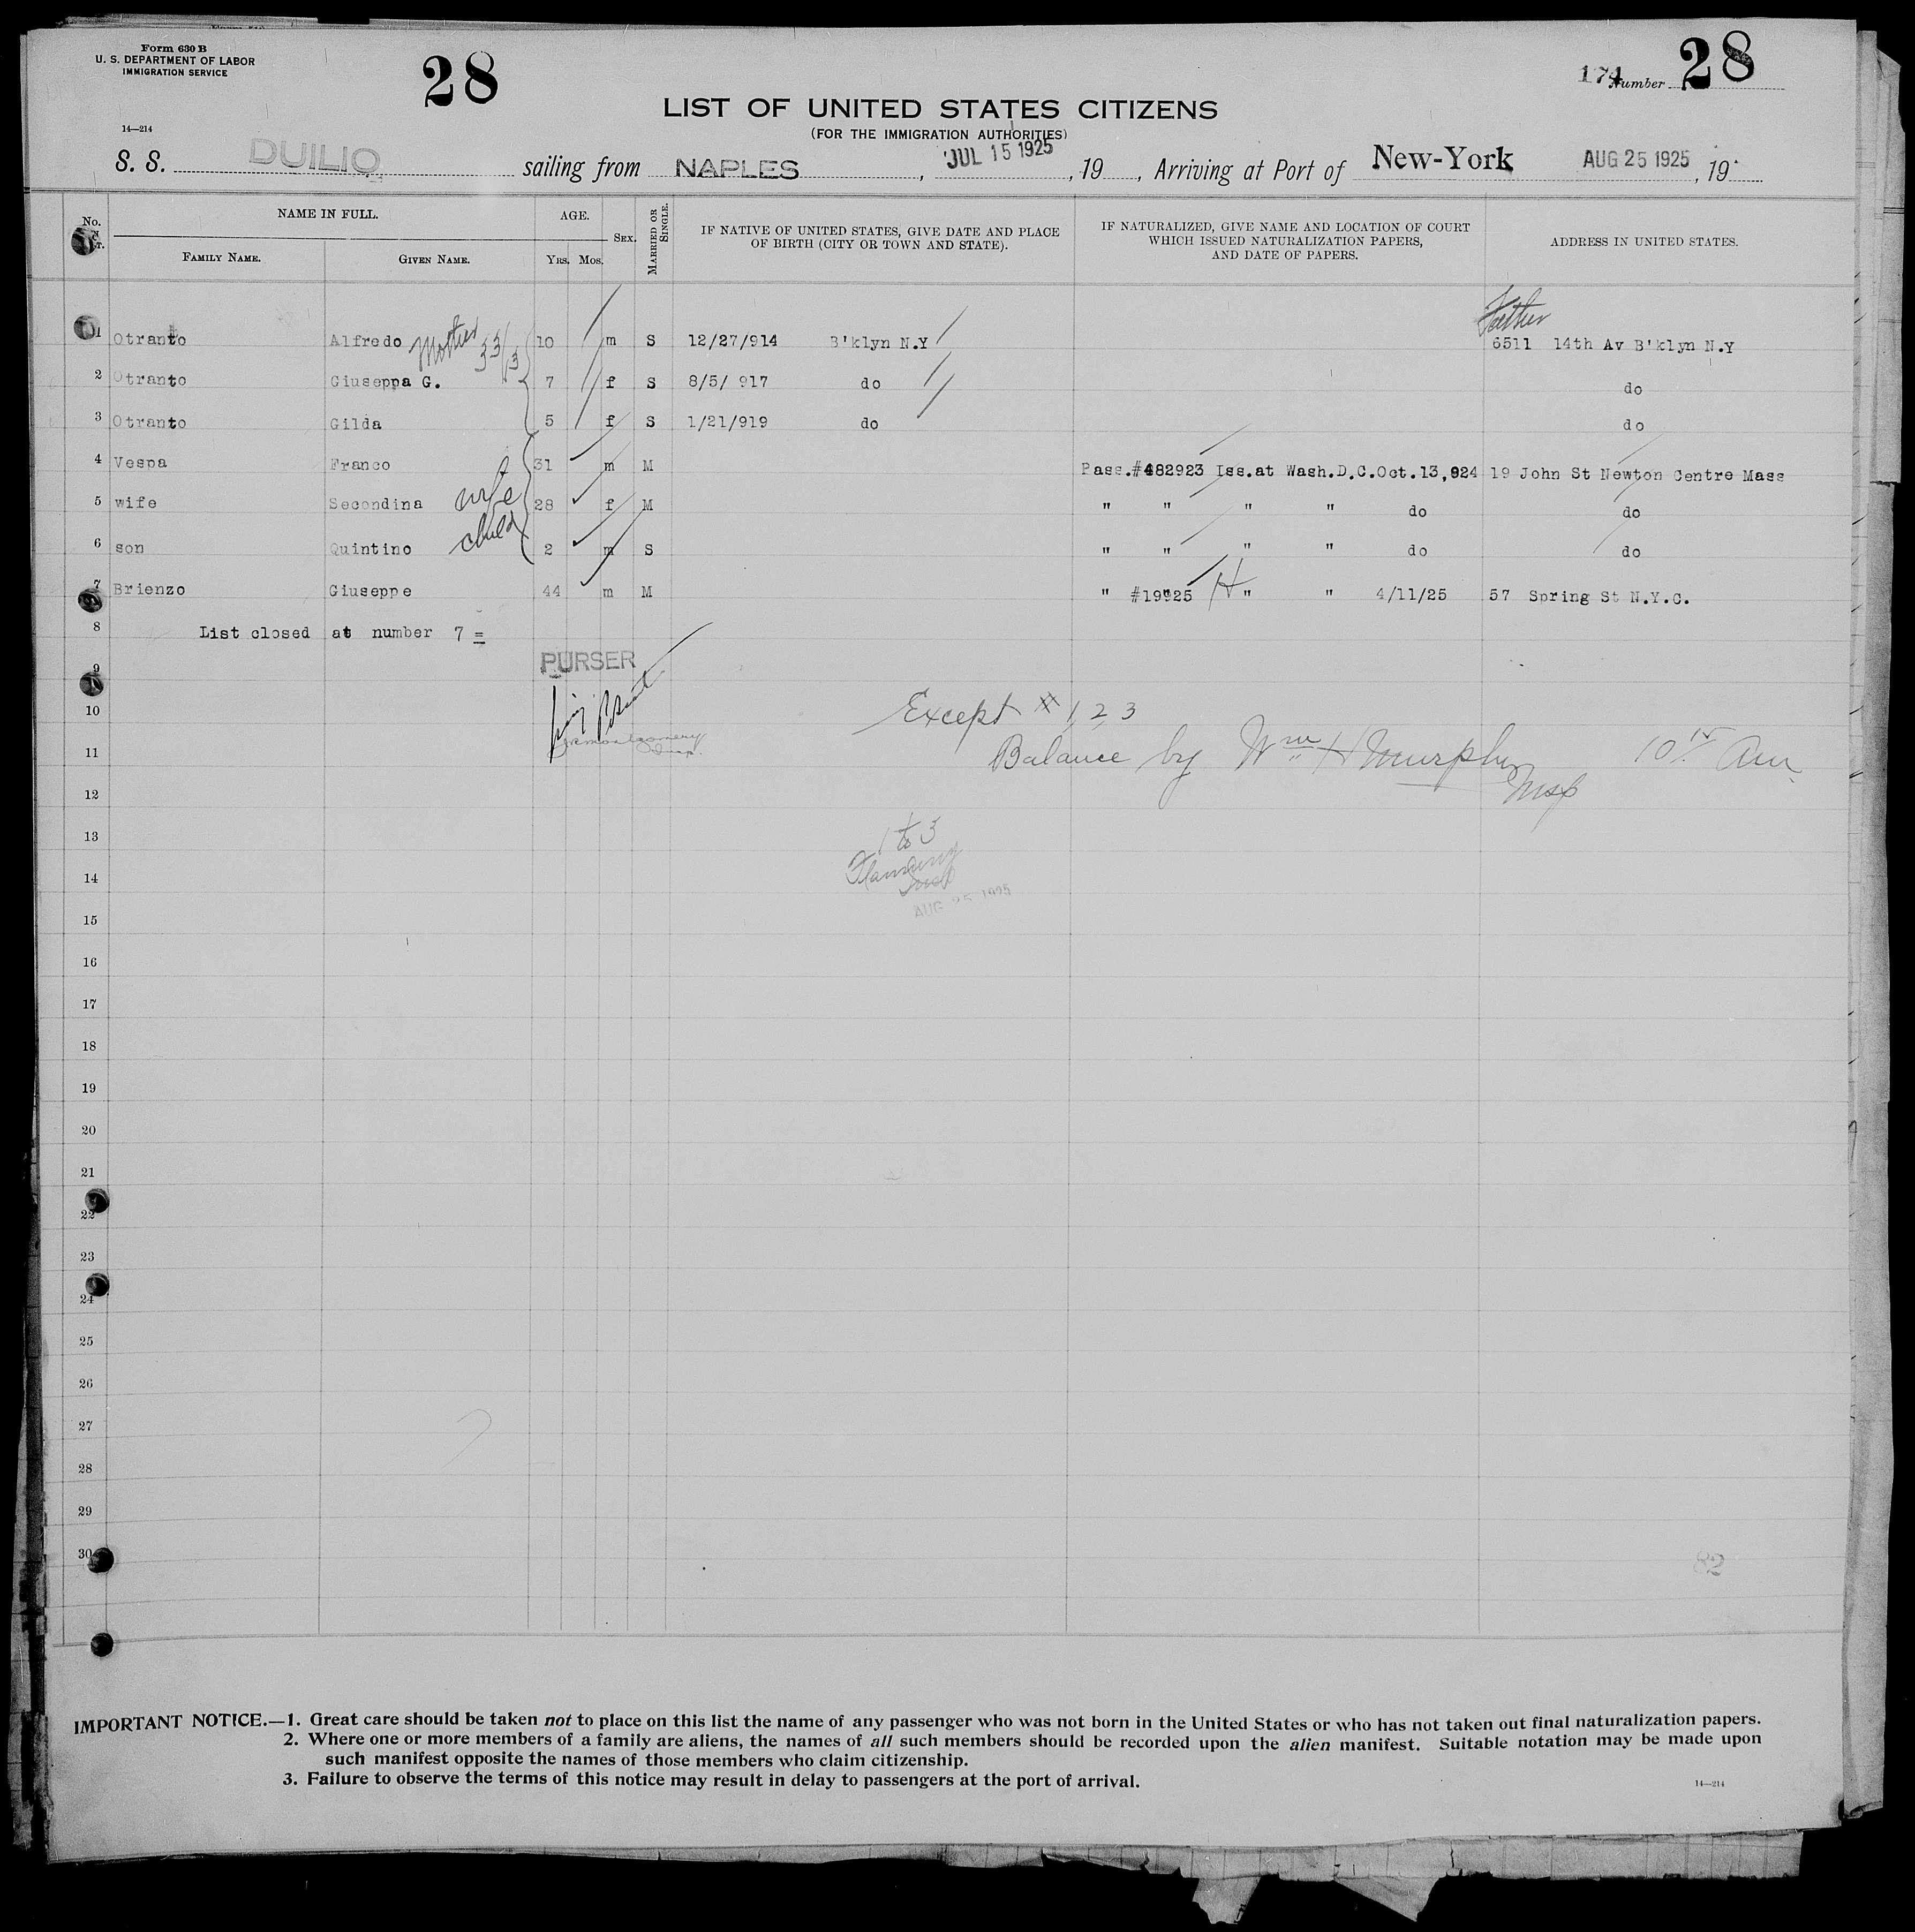 Form 630 B
U. S. DEPARTMENT OF LABOR
IMMIGRATION SERVICE
28
174 Number 28
LIST OF UNITED STATES CITIZENS
(FOR THE IMMIGRATION AUTHORITIES)
14—214
S. S. DUILIO sailing from NAPLES, JUL 15 1925, 19 , Arriving at Port of New-York AUG 25 1925, 19
No. NAME IN FULL. AGE. SEX. MARRIED OR SINGLE. IF NATIVE OF UNITED STATES, GIVE DATE AND PLACE OF BIRTH (CITY OR TOWN AND STATE). IF NATURALIZED, GIVE NAME AND LOCATION OF COURT WHICH ISSUED NATURALIZATION PAPERS, AND DATE OF PAPERS. ADDRESS IN UNITED STATES.
FAMILY NAME. GIVEN NAME. YRS. MOS.
Father
1 Otranto Alfredo Mother 33/13 10 m S 12/27/914 B'klyn N.Y 6511 14th Av B'klyn N.Y
2 Otranto Giuseppa G. 7 f S 8/5/ 917 do do
3 Otranto Gilda 5 f S 1/21/919 do do
4 Vespa Franco 31 m M Pass.#482923 Iss.at Wash.D.C.Oct.13,924 19 John St Newton Centre Mass
5 wife Secondina wife 28 f M " " " " do do
6 son Quintino child 2 m S " " " " do do
7 Brienzo Giuseppe 44 m M " #19925 " " 4/11/25 57 Spring St N.Y.C.
8 List closed at number 7 =
PURSER
9
10 Except # 1, 2, 3
11 Balance by Wm H Murphy Insp
12
13 1 to 3
14
AUG 25 1925
15
16
17
18
19
20
21
22
23
24
25
26
27
28
29
30
82
IMPORTANT NOTICE.—1. Great care should be taken not to place on this list the name of any passenger who was not born in the United States or who has not taken out final naturalization papers.
2. Where one or more members of a family are aliens, the names of all such members should be recorded upon the alien manifest. Suitable notation may be made upon
such manifest opposite the names of those members who claim citizenship.
3. Failure to observe the terms of this notice may result in delay to passengers at the port of arrival.
14—214